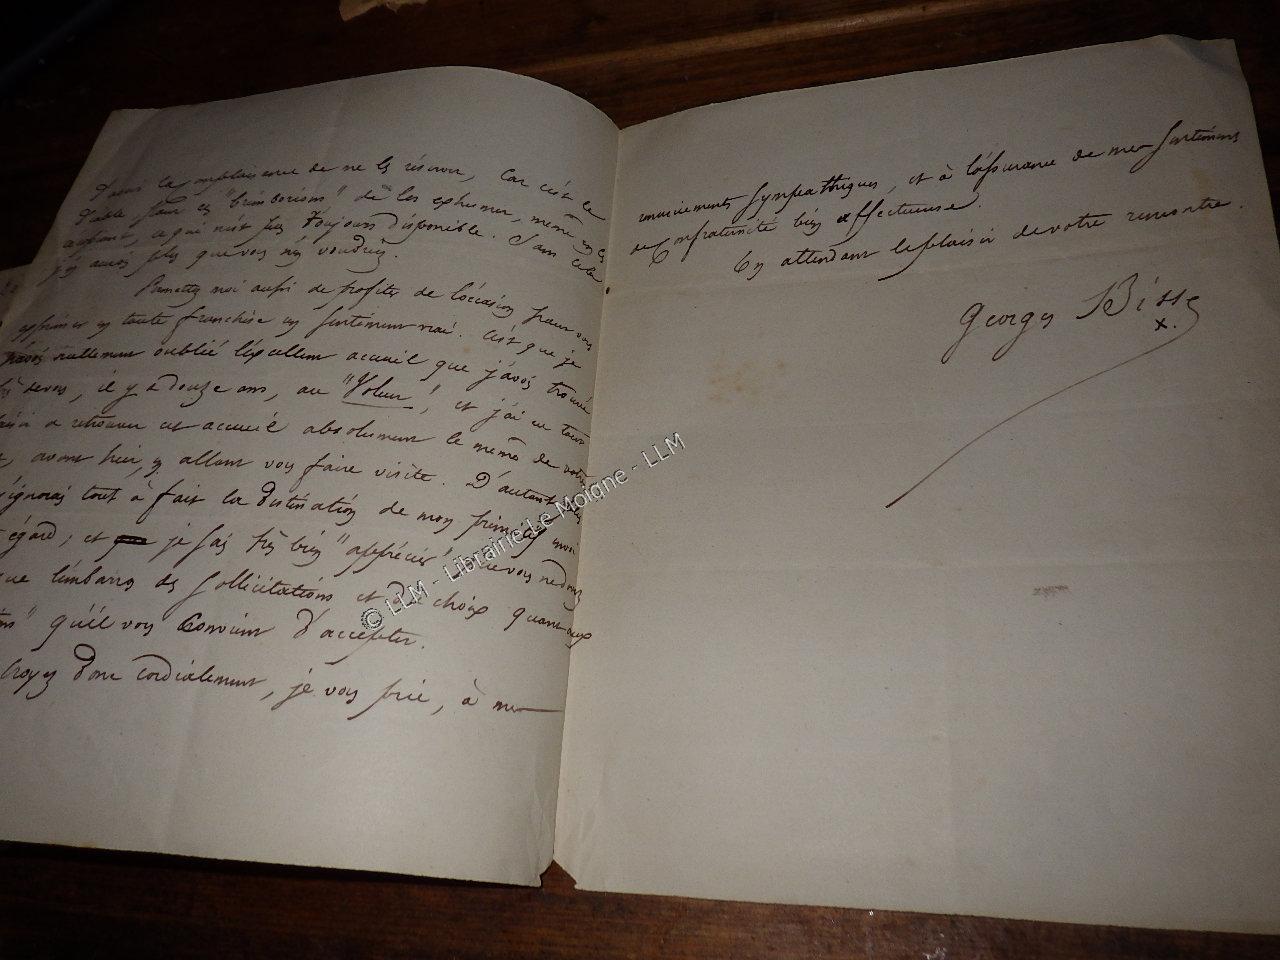 la complaisance de ne les réserver, car c'est le
diable pour ces "brimborions" de les exhumer, même en les
achetant, ce qui n'est pas toujours disponible. Sans cela
j'y aurais plus que vous n'en voudriez.
Permettez moi aussi de profiter de l'occasion pour vous
exprimer en toute franchise un sentiment vrai. C'est que je
n'avais nullement oublié l'excellent accueil que j'avais trouvé
il y a douze ans, au "Voleur", et j'ai eu tout
à retrouver cet accueil absolument le même de votre
avant hier, en allant vous faire visite. D'autant
j'ignorais tout à fait la destination de mon primitif envoi
égard, et je sais très bien "apprécier" que vous n'ayez
que l'embarras des sollicitations et du choix quant aux
qu'il vous convient d'accepter.
Croyez donc cordialement, je vous prie, à mes
remerciements sympathiques, et à l'assurance de mes sentiments
de confraternité bien affectueuse.
En attendant le plaisir de votre rencontre.
Georges Bisse
x.
© LLM - Librairie Le Moigne - LLM